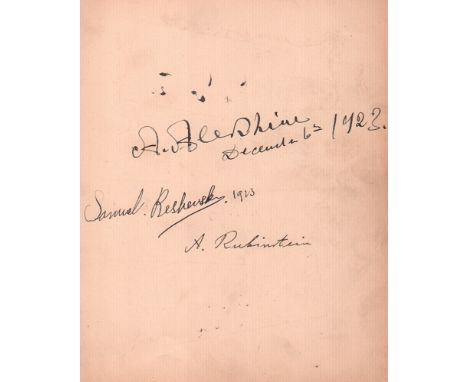 A. Alekhine
December 6th 1923.
Samuel Reshevsky. 1923
A. Rubinstein